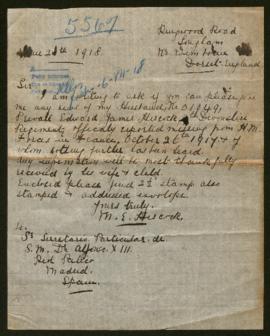 5567
Ringwood Road
Longham
Nr Wimborne
Dorset England
June 20th 1918
Sir
I am writing to ask if you can please give
me any news of my Husband, No
Private Edward James Hiscock, Devonshire
Regiment, officially reported missing from H.M.
Forces in France, October 26th 1917 &
whom nothing further has been heard.
Any information will be most thankfully
received by his wife & child.
Enclosed please find 2½ stamp also
stamped & addressed envelope.
Yours truly.
M. E. Hiscock.
To
Sr Secretario Particular de
S. M. Dn Alfonso XIII.
Madrid.
Spain.